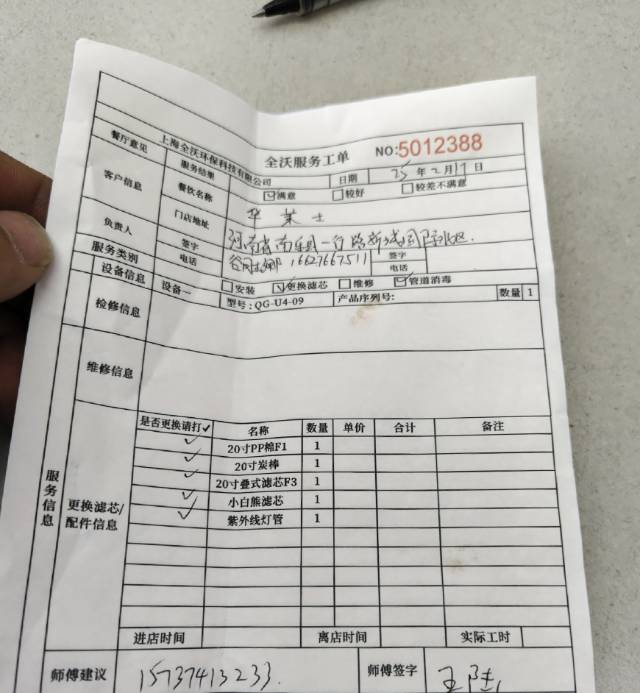 全沃服务工单 NO:5012388
上海全沃环保科技有限公司 日期 25年2月17日
餐厅意见 服务结果 ☑满意 □较好 □较差不满意
客户信息 餐饮名称 华莱士
门店地址 河南省南乐县
负责人 签字 签字
电话 16627667511 电话
服务类别 □安装 ☑更换滤芯 □维修 ☑管道消毒
设备信息 设备一 型号:QG-U4-09 产品序列号: 数量 1
检修信息
维修信息
服务信息
更换滤芯/配件信息
是否更换请打✓ 名称 数量 单价 合计 备注
✓ 20寸PP棉F1 1
✓ 20寸炭棒 1
✓ 20寸叠式滤芯F3 1
✓ 小白熊滤芯 1
✓ 紫外线灯管 1
进店时间 离店时间 实际工时
师傅建议 15737413233. 师傅签字